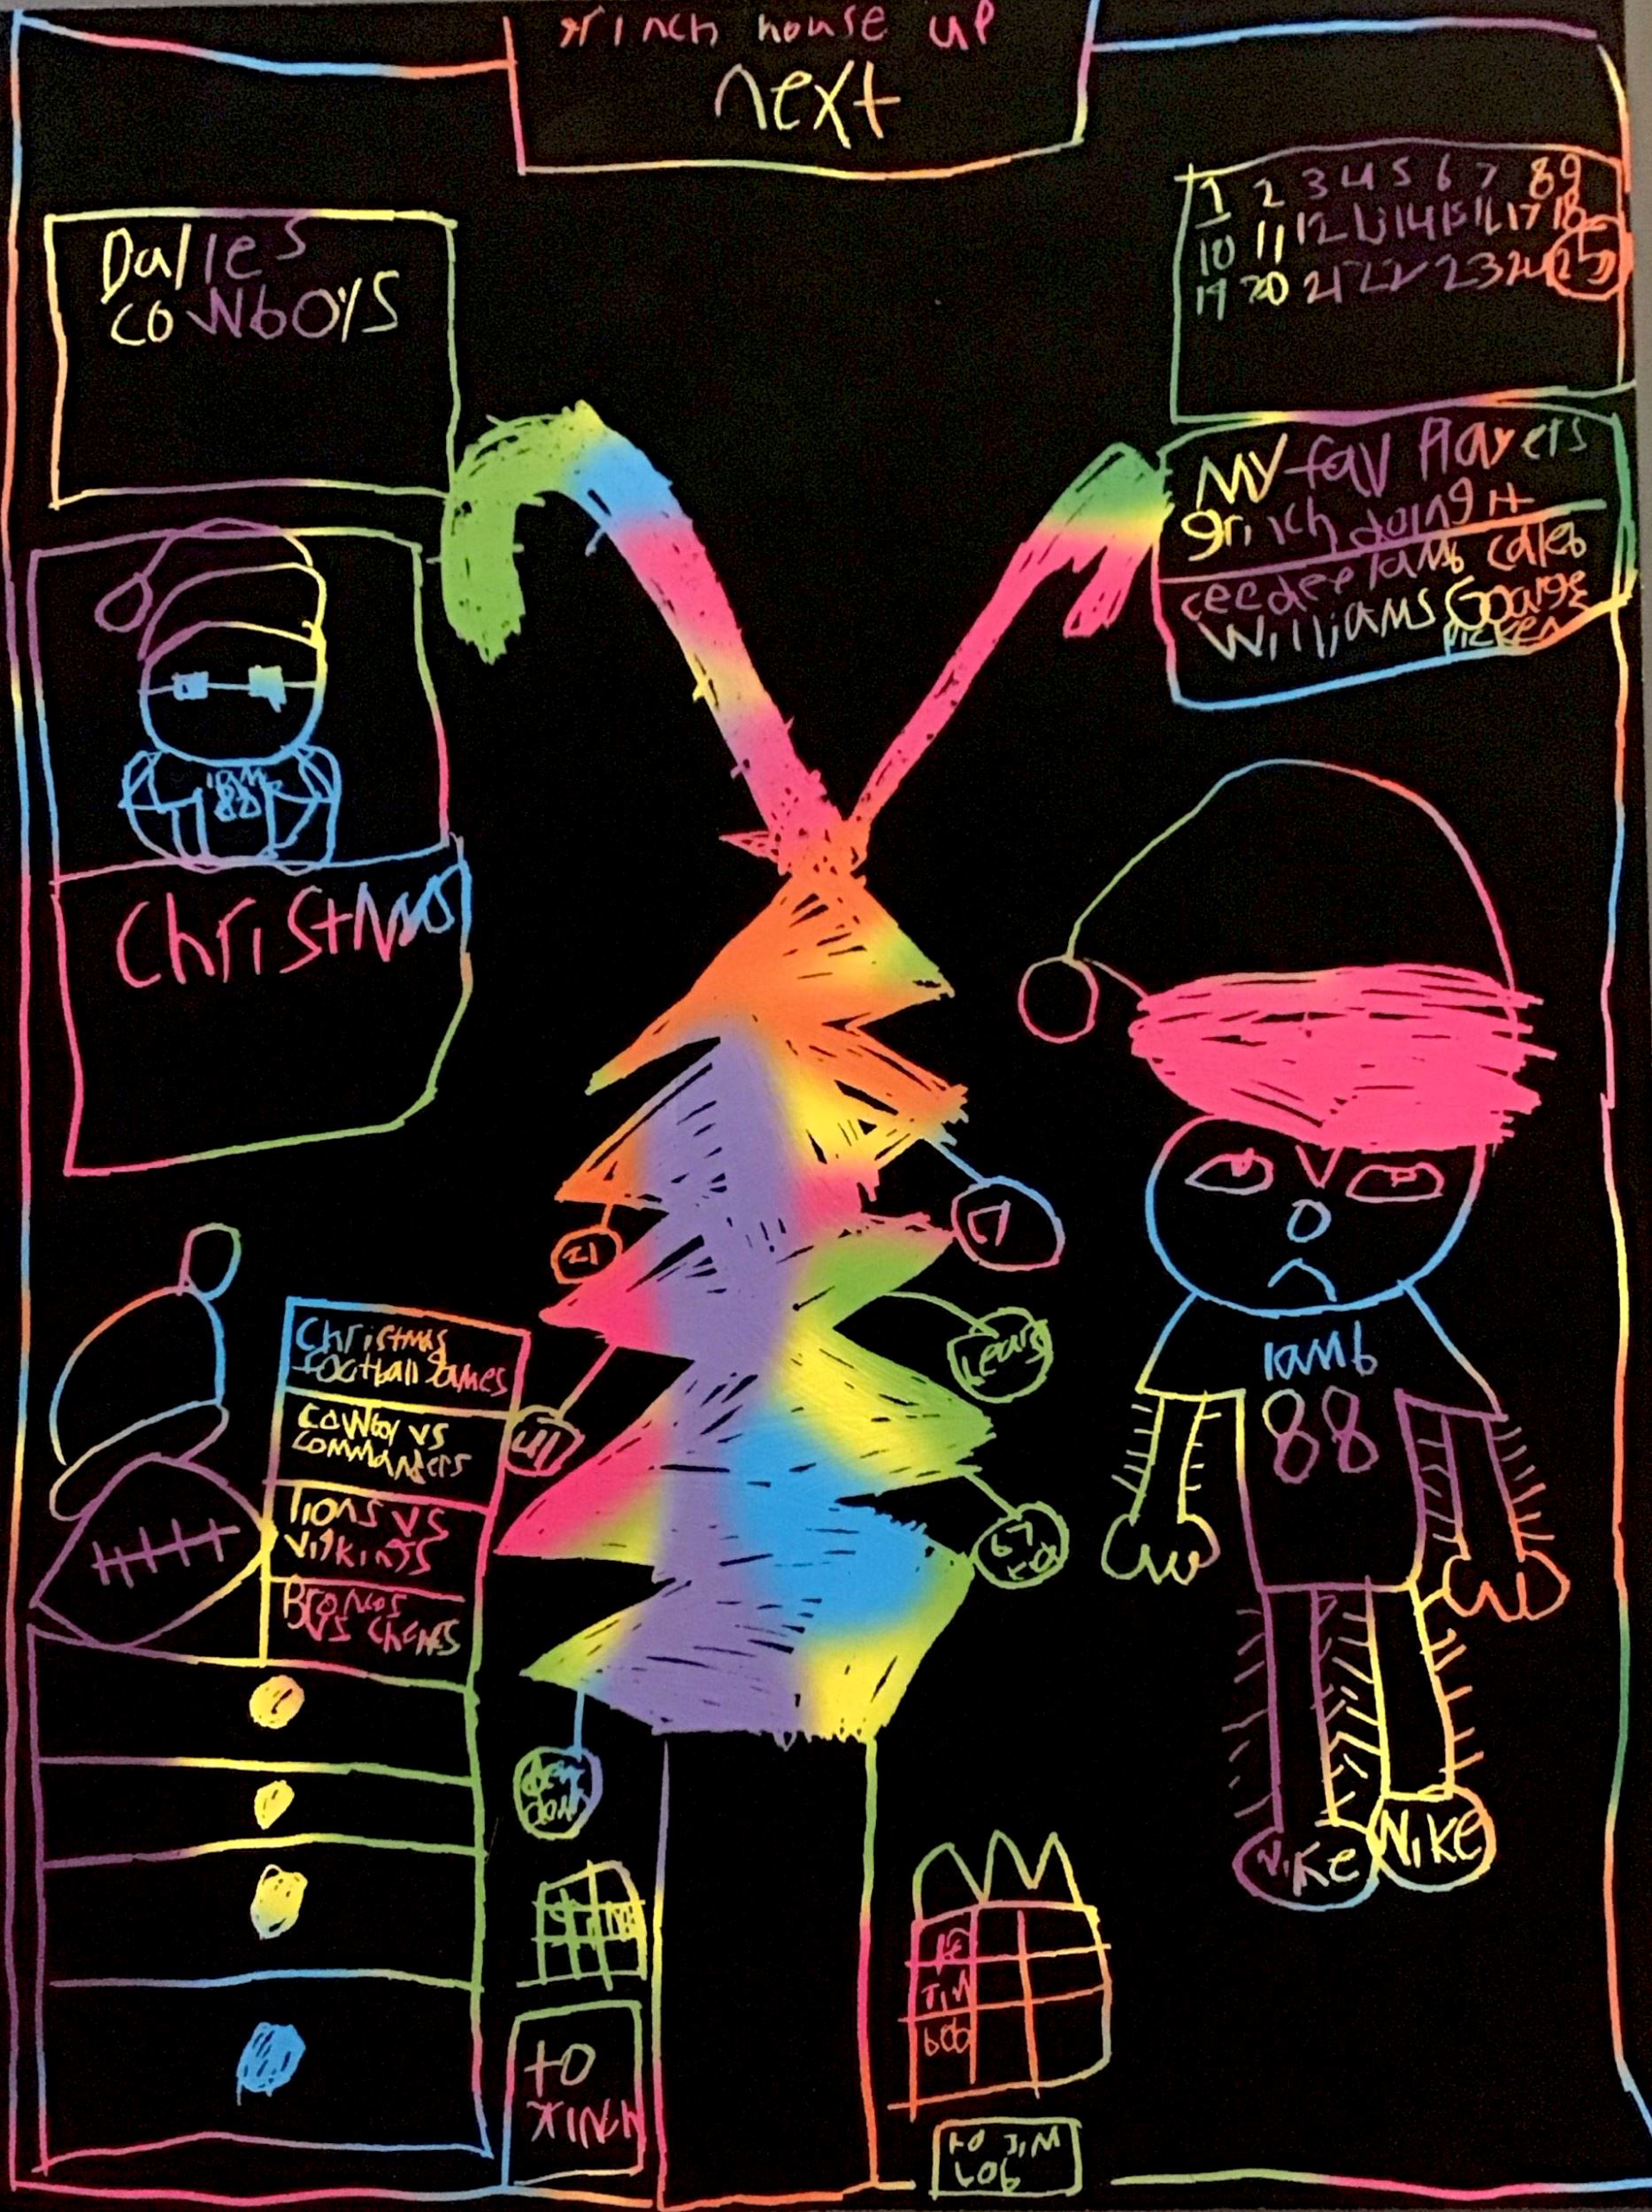 grinch house up
next
Dalles
cowboys
1 2 3 4 5 6 7 8 9
10 11 12 13 14 15 16 17 18
19 20 21 22 23 24 25
My fav Players
grinch doing it
ceedee lamb caleb
Williams Goarge
Picken
88
Christmas
21
Lears
41
67
Christmas
football games
cowboy vs
commanders
lions vs
vikings
Broncos
vs chiefs
lamb
88
Nike
Nike
to
to JiM